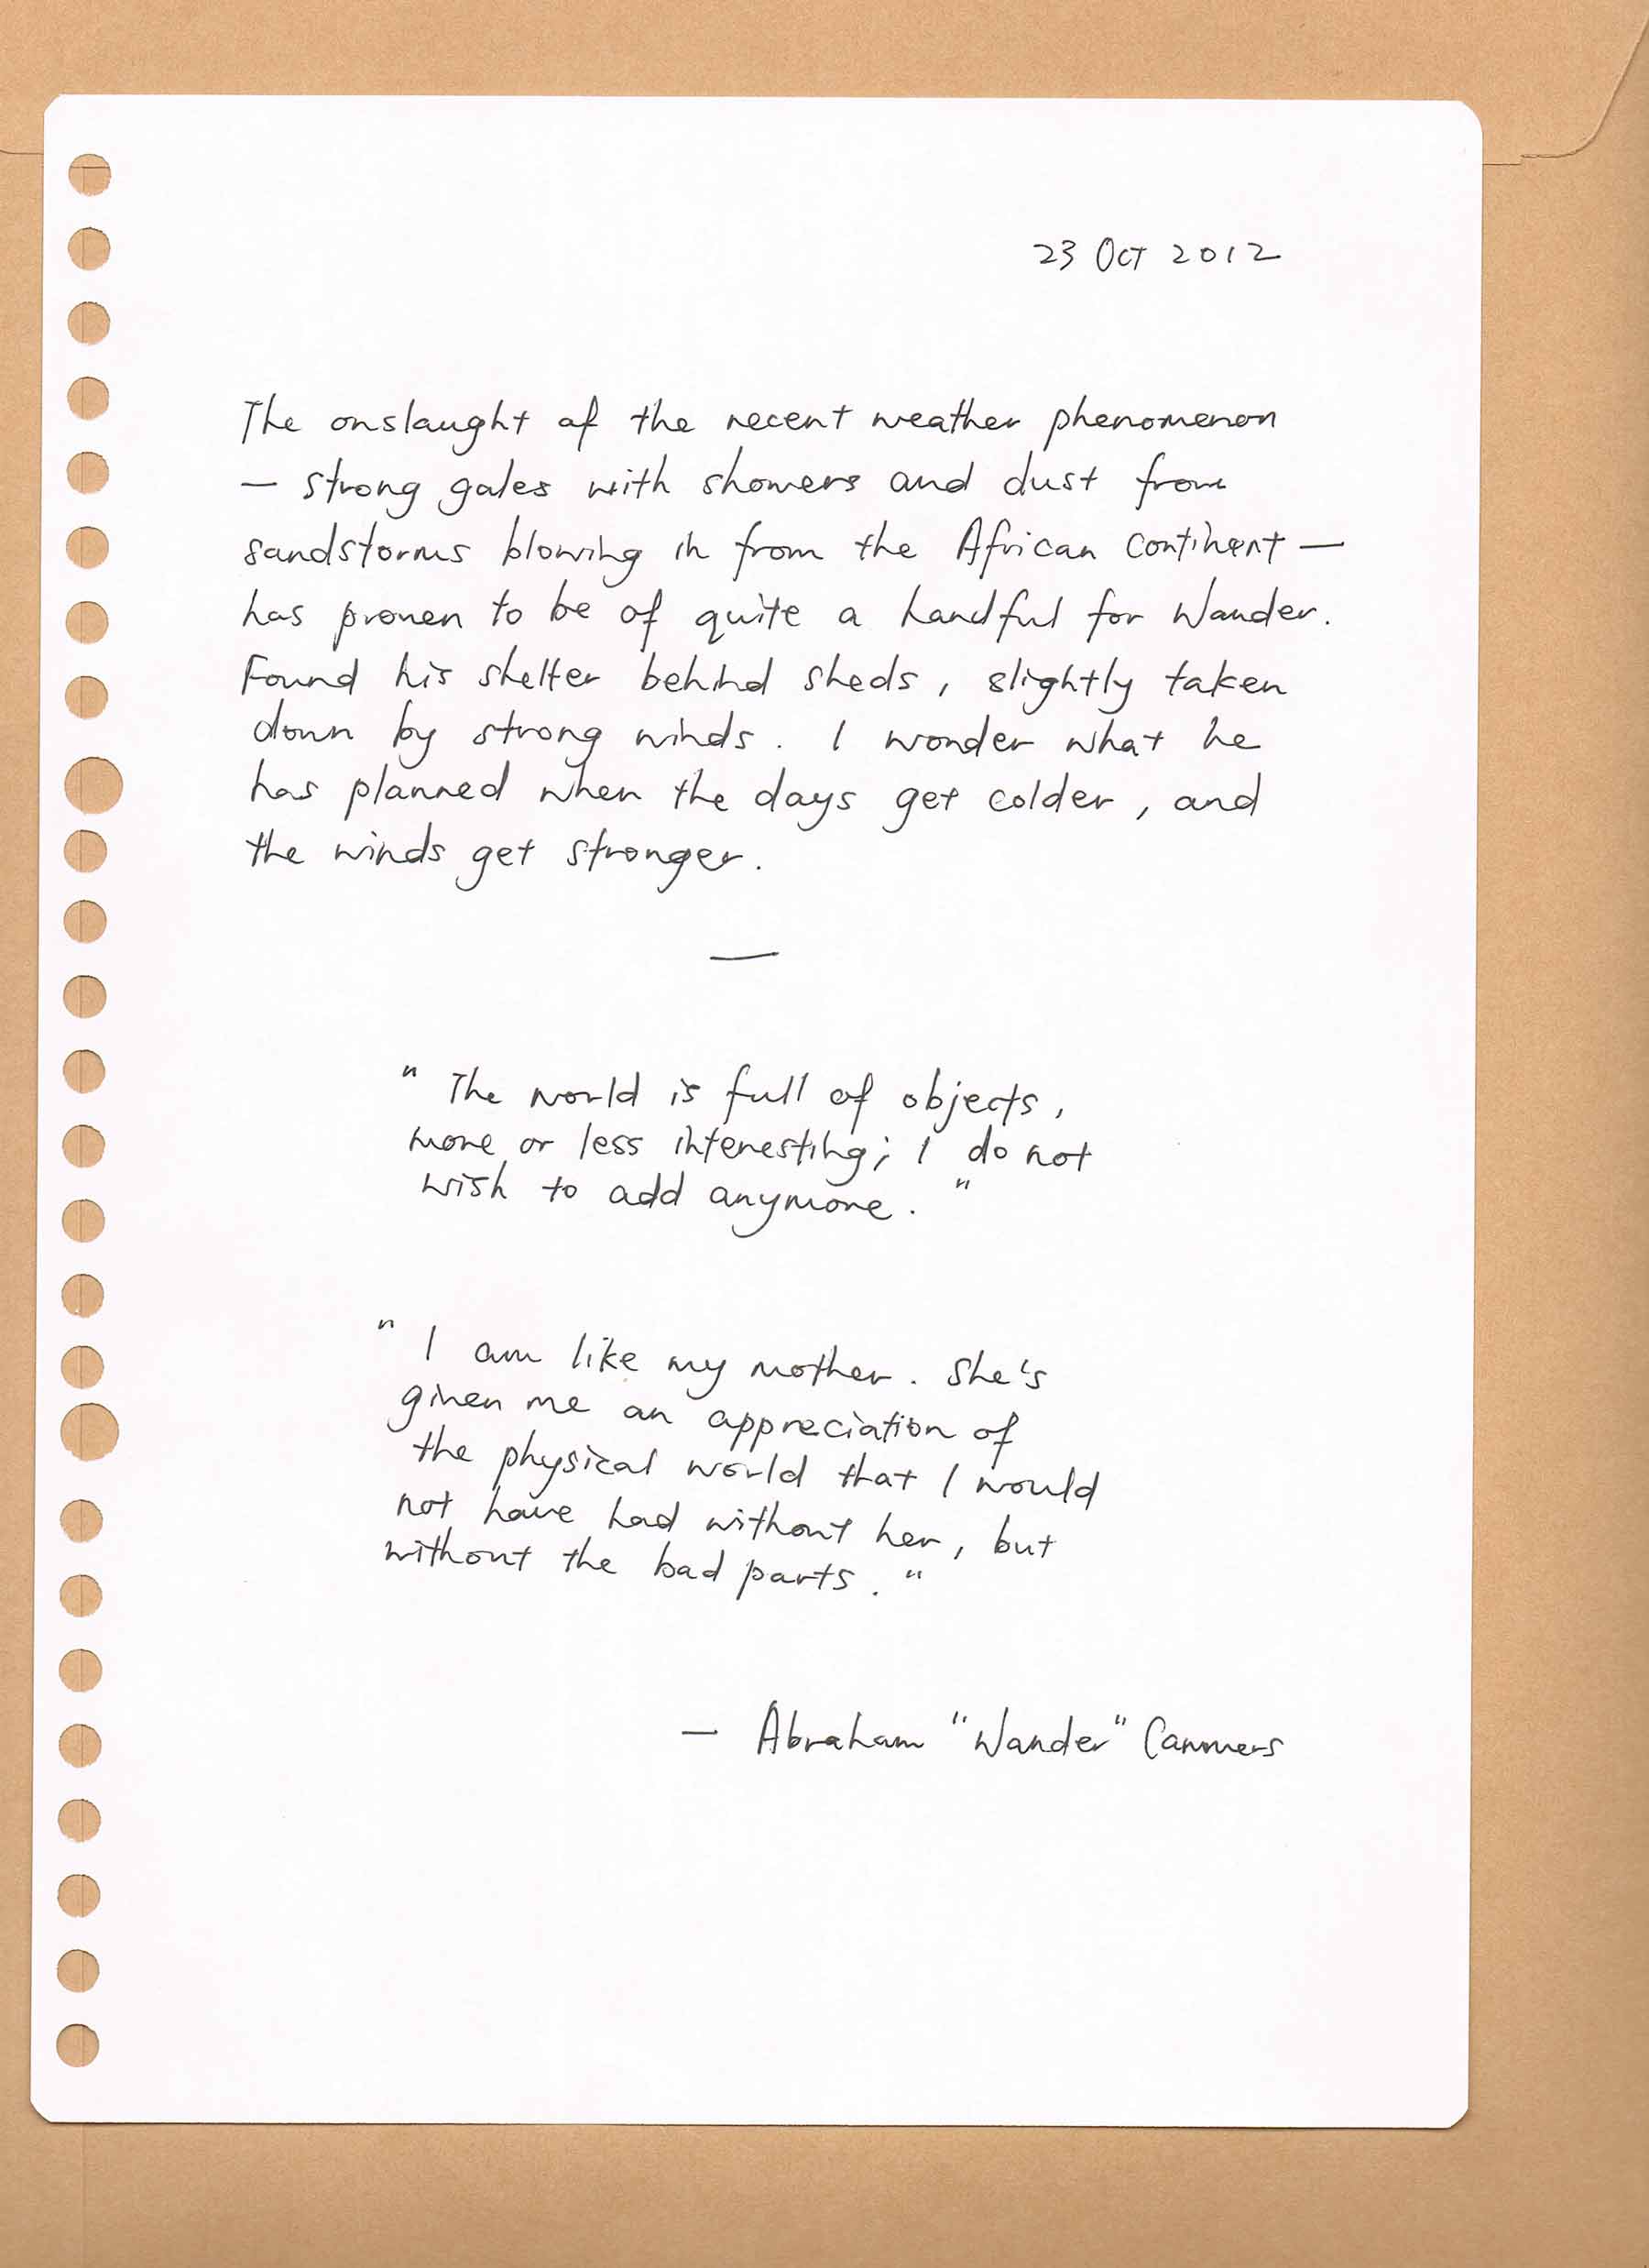 23 Oct 2012
The onslaught of the recent weather phenomenon
— strong gales with showers and dust from
sandstorms blowing in from the African continent —
has proven to be of quite a handful for Wander.
Found his shelter behind sheds, slightly taken
down by strong winds. I wonder what he
has planned when the days get colder, and
the winds get stronger.
—
"The world is full of objects,
more or less interesting; I do not
wish to add anymore."
"I am like my mother. She's
given me an appreciation of
the physical world that I would
not have had without her, but
without the bad parts."
— Abraham "Wander" Cammers